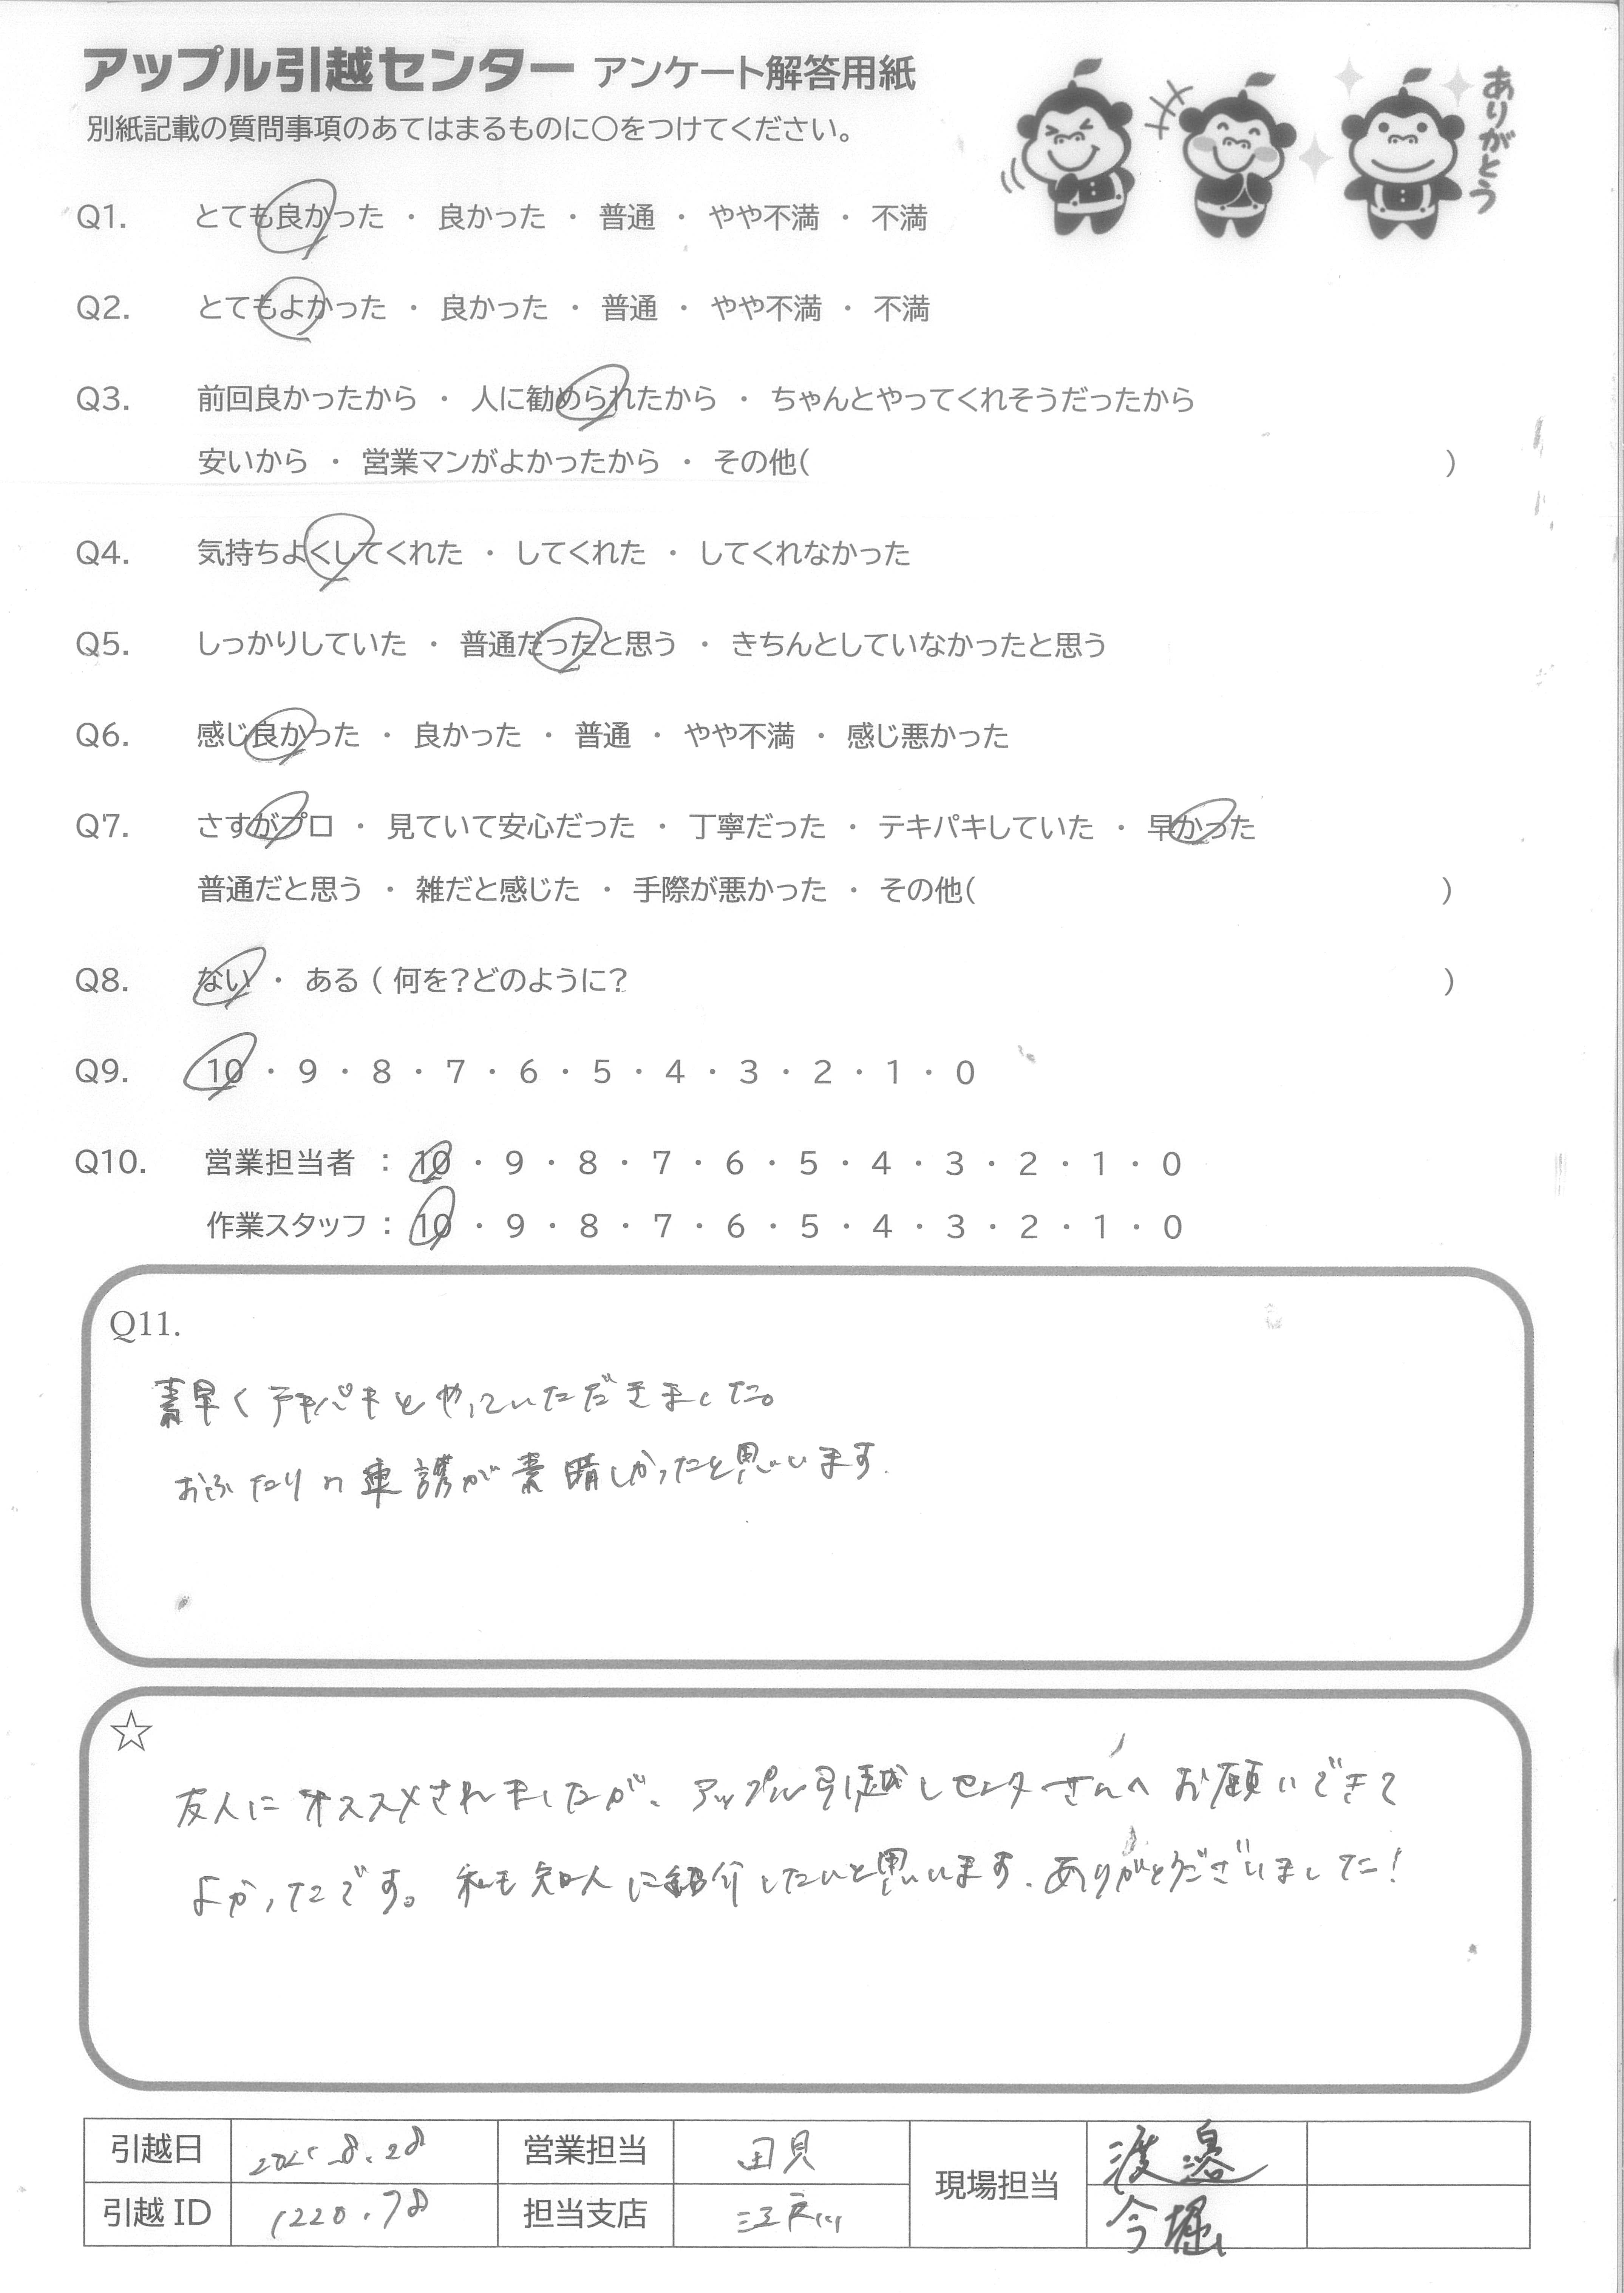 アップル引越センター アンケート解答用紙
ありがとう
別紙記載の質問事項のあてはまるものに○をつけてください。
Q1. とても良かった ・ 良かった ・ 普通 ・ やや不満 ・ 不満
Q2. とてもよかった ・ 良かった ・ 普通 ・ やや不満 ・ 不満
Q3. 前回良かったから ・ 人に勧められたから ・ ちゃんとやってくれそうだったから
安いから ・ 営業マンがよかったから ・ その他( )
Q4. 気持ちよくしてくれた ・ してくれた ・ してくれなかった
Q5. しっかりしていた ・ 普通だったと思う ・ きちんとしていなかったと思う
Q6. 感じ良かった ・ 良かった ・ 普通 ・ やや不満 ・ 感じ悪かった
Q7. さすがプロ ・ 見ていて安心だった ・ 丁寧だった ・ テキパキしていた ・ 早かった
普通だと思う ・ 雑だと感じた ・ 手際が悪かった ・ その他( )
Q8. ない ・ ある ( 何を?どのように? )
Q9. 10 ・ 9 ・ 8 ・ 7 ・ 6 ・ 5 ・ 4 ・ 3 ・ 2 ・ 1 ・ 0
Q10. 営業担当者 : 10 ・ 9 ・ 8 ・ 7 ・ 6 ・ 5 ・ 4 ・ 3 ・ 2 ・ 1 ・ 0
作業スタッフ : 10 ・ 9 ・ 8 ・ 7 ・ 6 ・ 5 ・ 4 ・ 3 ・ 2 ・ 1 ・ 0
Q11.
素早くテキパキとやっていただきました。
おふたりの連携が素晴しかったと思います.
☆
友人にオススメされましたが、アップル引越しセンターさんへお願いできて
よかったです。私も知人に紹介したいと思います. ありがとうございました!
引越日 2025.8.28 営業担当 現場担当 渡邉
引越 ID 1220.78 担当支店 江戸川 今堀